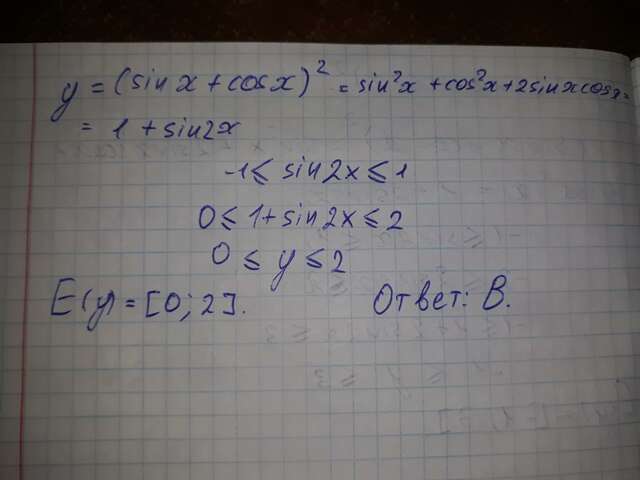 y = (sin x + cos x)² = sin²x + cos²x + 2 sin x cos x =
= 1 + sin2x
-1 ⩽ sin 2x ⩽ 1
0 ⩽ 1 + sin 2x ⩽ 2
0 ⩽ y ⩽ 2
E(y) = [0; 2]. Ответ: В.